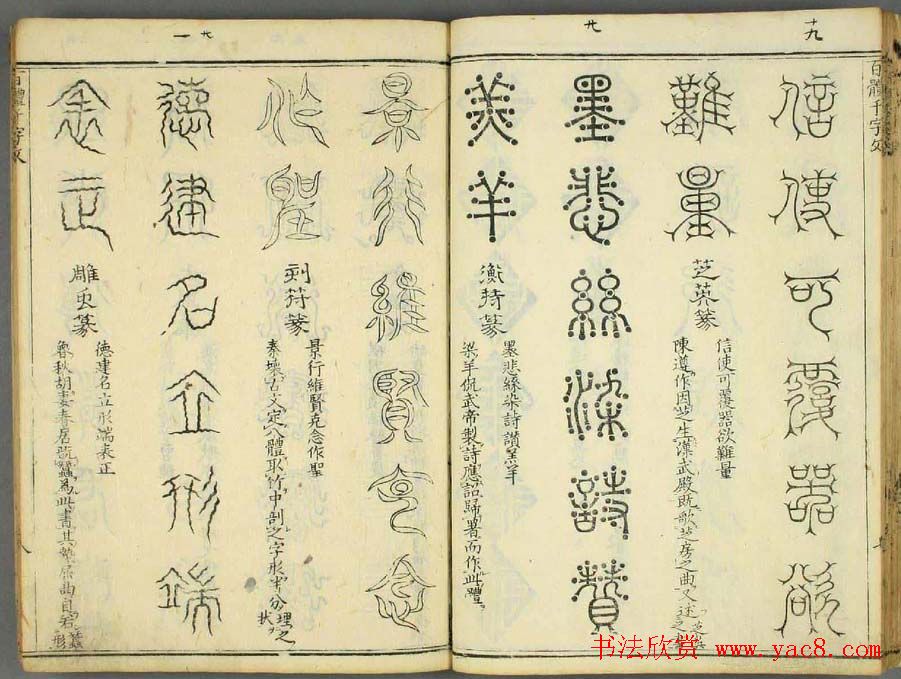 百體千字文
十九
信使可覆器欲
難量
芝英篆
信使可覆器欲難量
陳遵作因芝生漢武殿既歌芝房之曲又述
廿
墨悲絲染詩讚
羔羊
衡持篆
墨悲絲染詩讚羔羊
梁羊侃武帝製詩應詔歸署而作此體
景行維賢克念
作聖
剖符篆
景行維賢克念作聖
秦壞古文定八體取竹中剖之字形半分理之狀
廿一
德建名立形端
表正
雕虫篆
德建名立形端表正
魯秋胡妻春居翫蠶為此書其勢屈曲自若形
百體千字文
书法欣赏 www.yac8.com